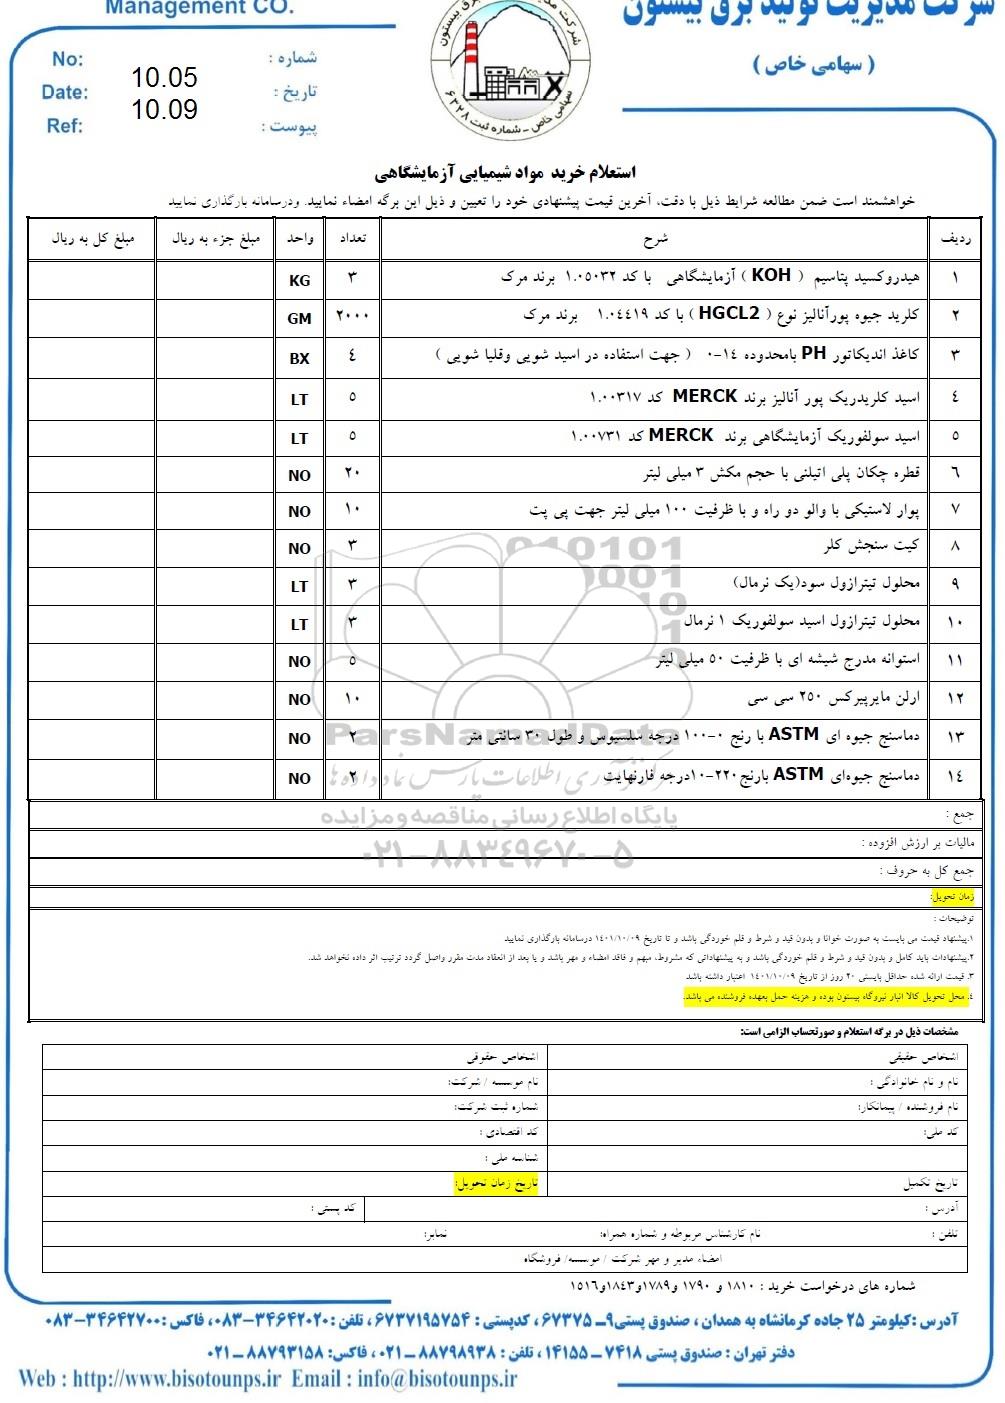 Management CO.
شرکت مدیریت تولید برق بیستون
( سهامی خاص )
سهامی خاص - شماره ثبت ۶۳۲۸
No:
10.05
شماره :
Date:
10.09
تاریخ :
Ref:
پیوست :
استعلام خرید مواد شیمیایی آزمایشگاهی
خواهشمند است ضمن مطالعه شرایط ذیل با دقت، آخرین قیمت پیشنهادی خود را تعیین و ذیل این برگه امضاء نمایید. ودرسامانه بارگذاری نمایید
ردیف شرح تعداد واحد مبلغ جزء به ریال مبلغ کل به ریال
۱ هیدروکسید پتاسیم ( KOH ) آزمایشگاهی با کد ۱.۰۵۰۳۲ برند مرک ۳ KG
۲ کلرید جیوه پورآنالیز نوع ( HGCL2 ) با کد ۱.۰۴۴۱۹ برند مرک ۲۰۰۰ GM
۳ کاغذ اندیکاتور PH بامحدوده ۱۴-۰ ( جهت استفاده در اسید شویی وقلیا شویی ) ٤ BX
٤ اسید کلریدریک پور آنالیز برند MERCK کد ۱.۰۰۳۱۷ ۵ LT
۵ اسید سولفوریک آزمایشگاهی برند MERCK کد ۱.۰۰۷۳۱ ۵ LT
٦ قطره چکان پلی اتیلنی با حجم مکش ۳ میلی لیتر ۲۰ NO
۷ پوار لاستیکی با والو دو راه و با ظرفیت ۱۰۰ میلی لیتر جهت پی پت ۱۰ NO
۸ کیت سنجش کلر ۳ NO
۹ محلول تیترازول سود(یک نرمال) ۳ LT
۱۰ محلول تیترازول اسید سولفوریک ۱ نرمال ۳ LT
۱۱ استوانه مدرج شیشه ای با ظرفیت ۵۰ میلی لیتر ۵ NO
۱۲ ارلن مایرپیرکس ۲۵۰ سی سی ۱۰ NO
۱۳ دماسنج جیوه ای ASTM با رنج ۰-۱۰۰ درجه سلسیوس و طول ۳۰ سانتی متر ۲ NO
۱٤ دماسنج جیوه‌ای ASTM بارنج۲۲۰-۱۰درجه فارنهایت ۲ NO
ParsNamadData
مرکز فرآوری اطلاعات پارس نماد داده ها
پایگاه اطلاع رسانی مناقصه و مزایده
۰۲۱-۸۸۳۴۹۶۷۰-۵
جمع :
مالیات بر ارزش افزوده :
جمع کل به حروف :
زمان تحویل:
توضیحات :
۱.پیشنهاد قیمت می بایست به صورت خوانا و بدون قید و شرط و قلم خوردگی باشد و تا تاریخ ۱٤۰۱/۱۰/۰۹ درسامانه بارگذاری نمایید
۲.پیشنهادات باید کامل و بدون قید و شرط و قلم خوردگی باشد و به پیشنهاداتی که مشروط، مبهم و فاقد امضاء و مهر باشد و یا بعد از انعقاد مدت مقرر واصل گردد ترتیب اثر داده نخواهد شد.
۳. قیمت ارائه شده حداقل بایستی ۲۰ روز از تاریخ ۱٤۰۱/۱۰/۰۹ اعتبار داشته باشد
٤. محل تحویل کالا انبار نیروگاه بیستون بوده و هزینه حمل بعهده فروشنده می باشد.
مشخصات ذیل در برگه استعلام و صورتحساب الزامی است:
اشخاص حقیقی اشخاص حقوقی
نام و نام خانوادگی : نام موسسه / شرکت:
نام فروشنده / پیمانکار: شماره ثبت شرکت:
کد ملی: کد اقتصادی :
شناسه ملی :
تاریخ تکمیل تاریخ زمان تحویل:
آدرس : کد پستی :
تلفن : نام کارشناس مربوطه و شماره همراه: نمابر:
امضاء مدیر و مهر شرکت / موسسه/ فروشگاه
شماره های درخواست خرید : ۱۸۱۰ و ۱۷۹۰ و۱۷۸۹و۱۸٤۳و۱۵۱٦
آدرس :کیلومتر ۲۵ جاده کرمانشاه به همدان ، صندوق پستی۹ـ ۶۷۳۷۵ ، کدپستی : ۶۷۳۷۱۹۵۷۵۴ ، تلفن : ۳۴۶۴۲۰۲۰-۰۸۳ ، فاکس : ۳۴۶۴۲۷۰۰-۰۸۳
دفتر تهران : صندوق پستی ۷۴۱۸ ـ ۱۴۱۵۵ ، تلفن : ۸۸۷۹۸۹۳۸ ـ ۰۲۱ ، فاکس: ۸۸۷۹۳۱۵۸ ـ ۰۲۱
Web : http://www.bisotounps.ir Email : info@bisotounps.ir